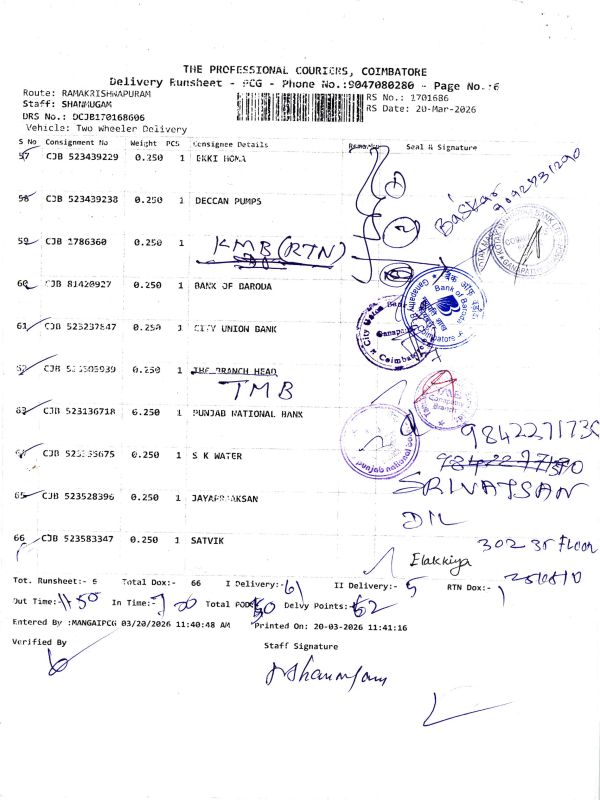 THE PROFESSIONAL COURIERS, COIMBATORE
Delivery Runsheet - PCG - Phone No.:9047080280 - Page No.:6
Route: RAMAKRISHNAPURAM
Staff: SHANMUGAM
DRS No.: DCJB170168606
Vehicle: Two Wheeler Delivery
RS No.: 1701686
RS Date: 20-Mar-2026
S No Consignment No Weight PCS Consignee Details Remarks Seal & Signature
57 CJB 523439229 0.250 1 EKKI HOMA
1
Baskar
58 CJB 523439238 0.250 1 DECCAN PUMPS
2
59 CJB 1786360 0.250 1 KMB (RTN)
60 CJB 81420927 0.250 1 BANK OF BARODA
Bank of Baroda
61 CJB 523237847 0.250 1 CITY UNION BANK
City Union Bank
Ganapathy
Coimbatore
62 CJB 0.250 1 THE BRANCH HEAD
TMB
63 CJB 523136718 6.250 1 PUNJAB NATIONAL BANK
punjab national bank
64 CJB 0.250 1 S K WATER
SRIVATSAN
65 CJB 523528396 0.250 1 JAYAPRAAKSAN
66 CJB 523583347 0.250 1 SATVIK
302 3r Floor
Elakkiya
Tot. Runsheet:- 6 Total Dox:- 66 I Delivery:- 61 II Delivery:- 5 RTN Dox:- 1
Out Time:- 11 50 In Time:- 7 00 Total PODS 50 Delvy Points:- 52
Entered By :MANGAIPCG 03/20/2026 11:40:48 AM Printed On: 20-03-2026 11:41:16
Verified By
Staff Signature